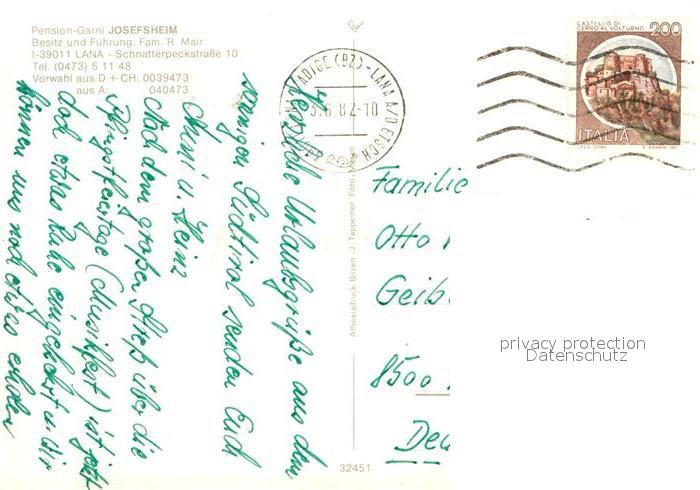 Pension-Garni JOSEFSHEIM
Besitz und Führung: Fam. R. Mair
I-39011 LANA - Schnatterpeckstraße 10
Tel. (0473) 5 11 48
Vorwahl aus D + CH: 0039473
aus A: 040473
CASTELLO DI
CERRO AL VOLTURNO
200
ITALIA
ADIGE (BZ) - LANA A/D ETSCH
6.82-10
Herzliche Urlaubsgrüße aus dem
sonnigen Südtirol senden Euch
Anni u. Heinz
Nach dem großen Streß über die
Pfingstfeiertage (Musikfest) ist jetzt
doch etwas Ruhe eingekehrt u. wir
können uns noch etwas erholen
Athesiadruck Bozen - J. Tappeiner Foto
32451
Familie
Otto
Geib
8500
Deu
privacy protection
Datenschutz